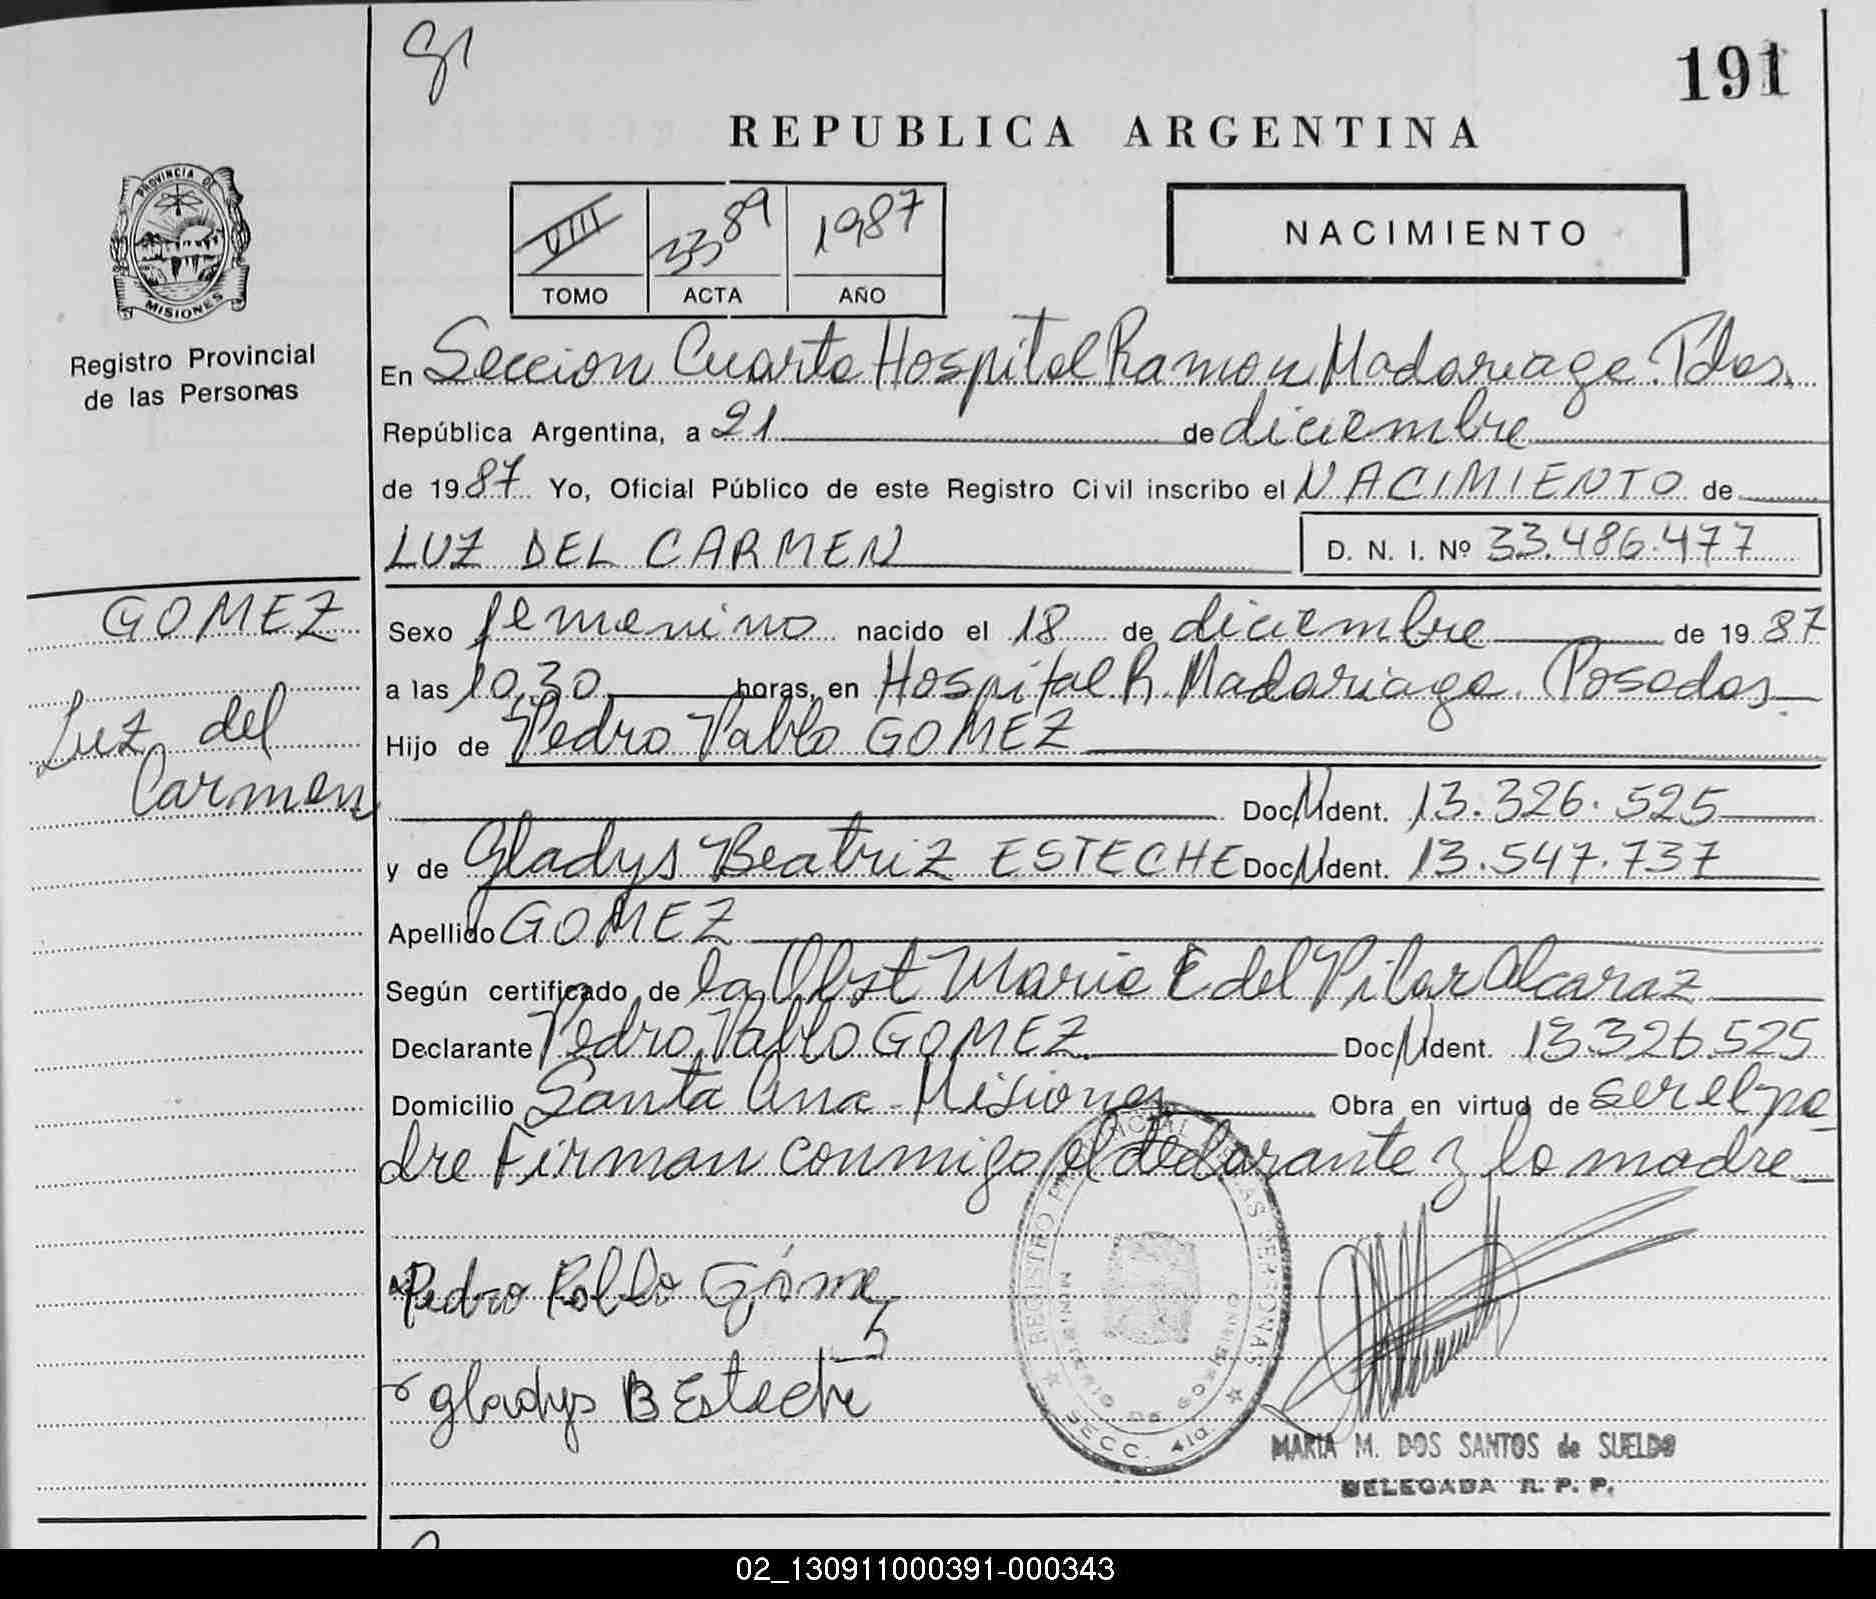 191
REPUBLICA ARGENTINA
PROVINCIA DE
MISIONES
Registro Provincial
de las Personas
VIII 3389 1987
TOMO ACTA AÑO
NACIMIENTO
En Seccion Cuarta Hospital Ramon Madariaga. Pdas.
República Argentina, a 21 de diciembre
de 1987 Yo, Oficial Público de este Registro Civil inscribo el NACIMIENTO de
LUZ DEL CARMEN D. N. I. Nº 33.486.477
GOMEZ
Luz del
Carmen
Sexo femenino nacido el 18 de diciembre de 1987
a las 10,30 horas, en Hospital R. Madariaga. Posadas
Hijo de Pedro Pablo GOMEZ
Doc. Ident. 13.326.525
y de Gladys Beatriz ESTECHE Doc. Ident. 13.547.737
Apellido GOMEZ
Según certificado de la Obst Maria E del Pilar Alcaraz
Declarante Pedro Pablo GOMEZ. Doc. Ident. 13.326.525
Domicilio Santa Ana - Misiones Obra en virtud de ser el pa
dre Firman conmigo el declarante y la madre
Pedro Pablo Gómez
Gladys B Esteche
REGISTRO PROVINCIAL DE LAS PERSONAS
SECC. 4ta.
MARIA M. DOS SANTOS de SUELDO
DELEGADA R. P. P.
02_130911000391-000343